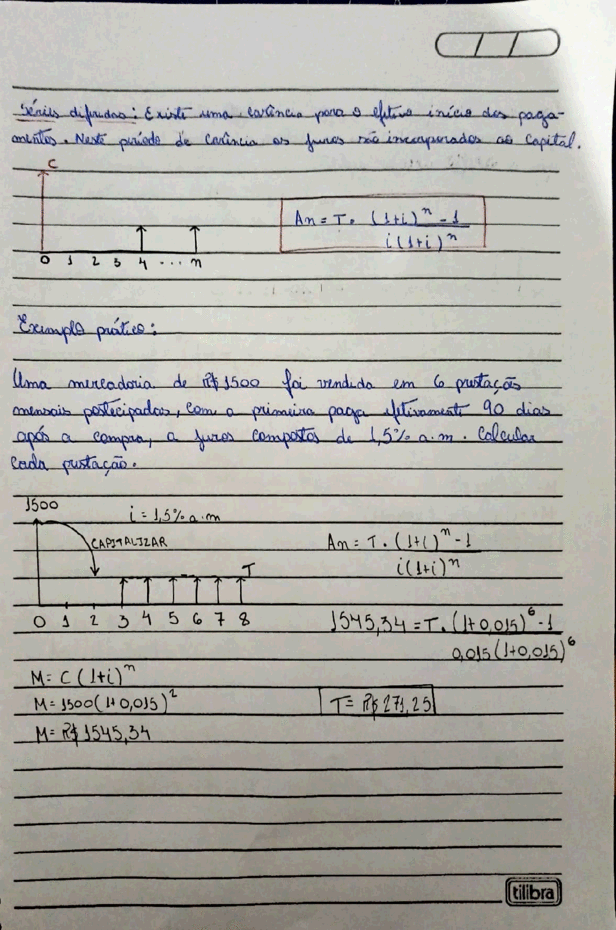 Séries diferidas: Existe uma carência para o efetivo início dos paga-
mentos. Neste período de carência os juros são incorporados ao capital.
C
0 1 2 3 4 ... n
An = T. (1+i)^n - 1
i(1+i)^n
Exemplo prático:
Uma mercadoria de R$ 1500 foi vendida em 6 prestações
mensais postecipadas, com a primeira paga efetivamente 90 dias
após a compra, a juros compostos de 1,5% a.m. Calcular
cada prestação.
1500
i = 1,5% a.m
CAPITALIZAR
T
0 1 2 3 4 5 6 7 8
An = T. (1+i)^n - 1
i(1+i)^n
1545,34 = T. (1+0,015)^6 - 1
0,015(1+0,015)^6
M = C (1+i)^n
M = 1500(1+0,015)^2
M = R$ 1545,34
T = R$ 271,25
tilibra